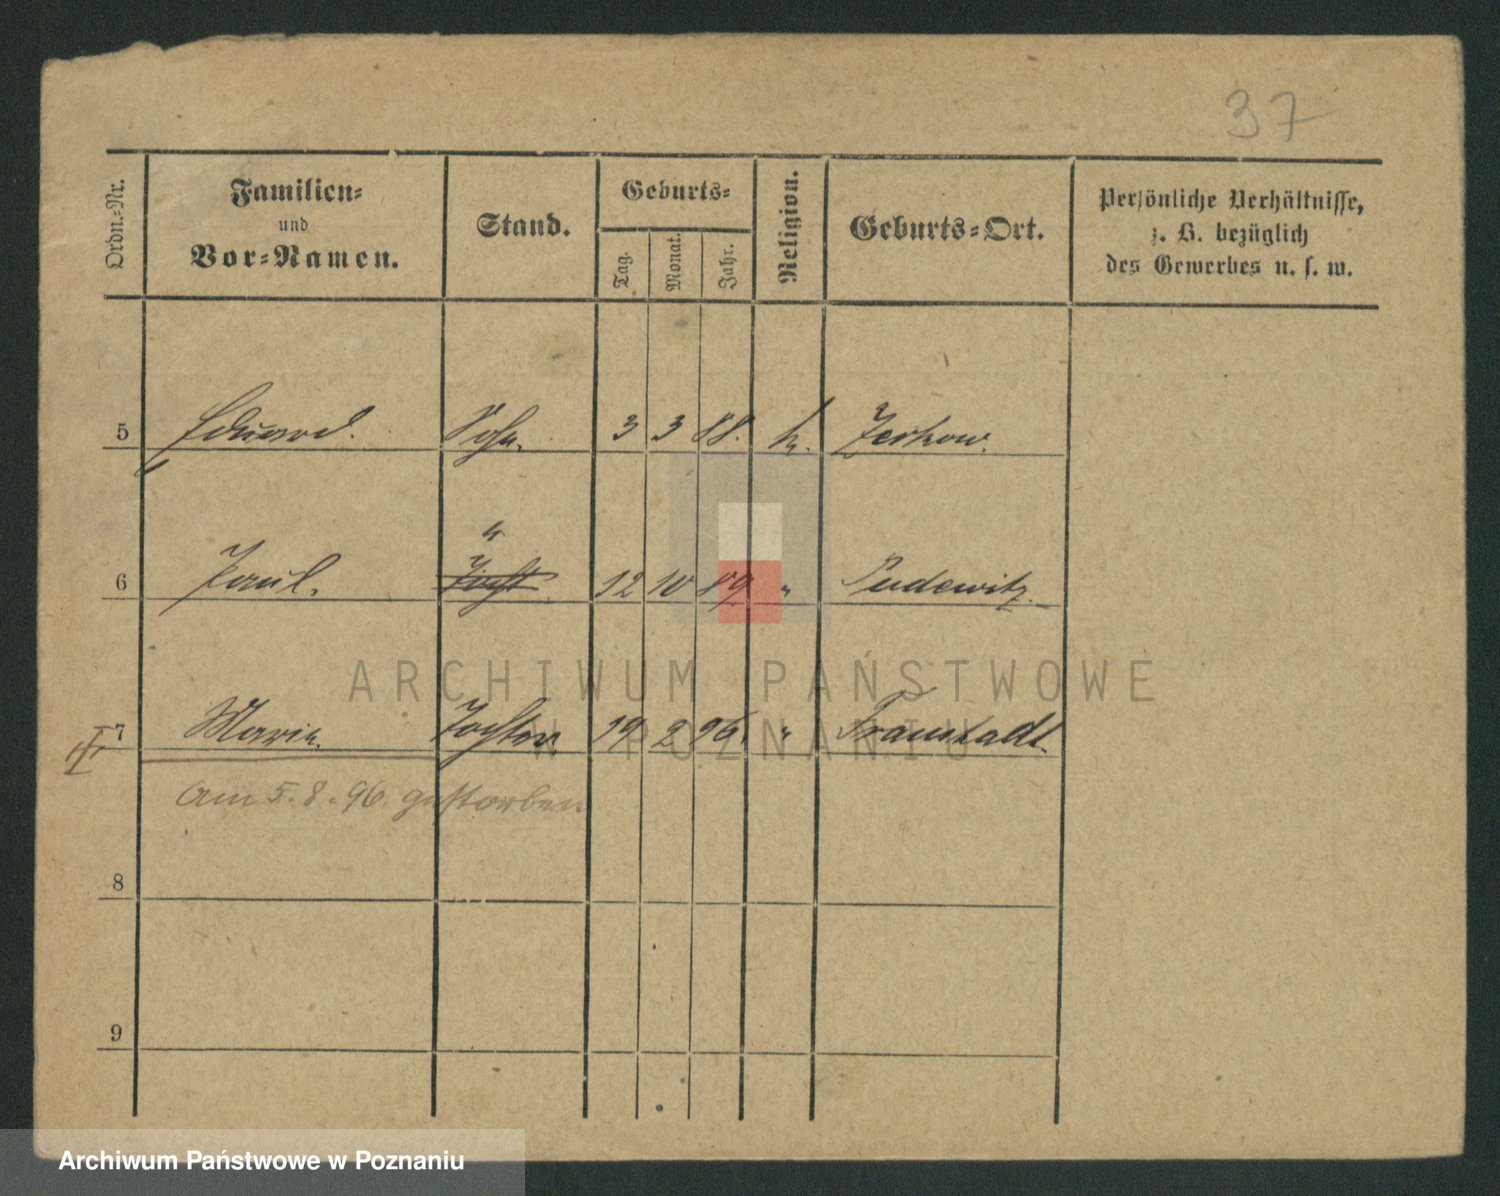 37
Ordn.-Nr.
Familien-
und
Vor-Namen.
Stand.
Geburts-
Tag.
Monat.
Jahr.
Religion.
Geburts-Ort.
Persönliche Verhältnisse,
z. B. bezüglich
des Gewerbes u. s. w.
5 Eduard. Sohn. 3 3 88. k. Zerkow.
"
6 Paul. 12 10 89 " Pudewitz.
7 Marie. Tochter 19 2 96. " Fraustadt.
am 5.8.96. gestorben
8
9
ARCHIWUM PAŃSTWOWE
W POZNANIU
Archiwum Państwowe w Poznaniu